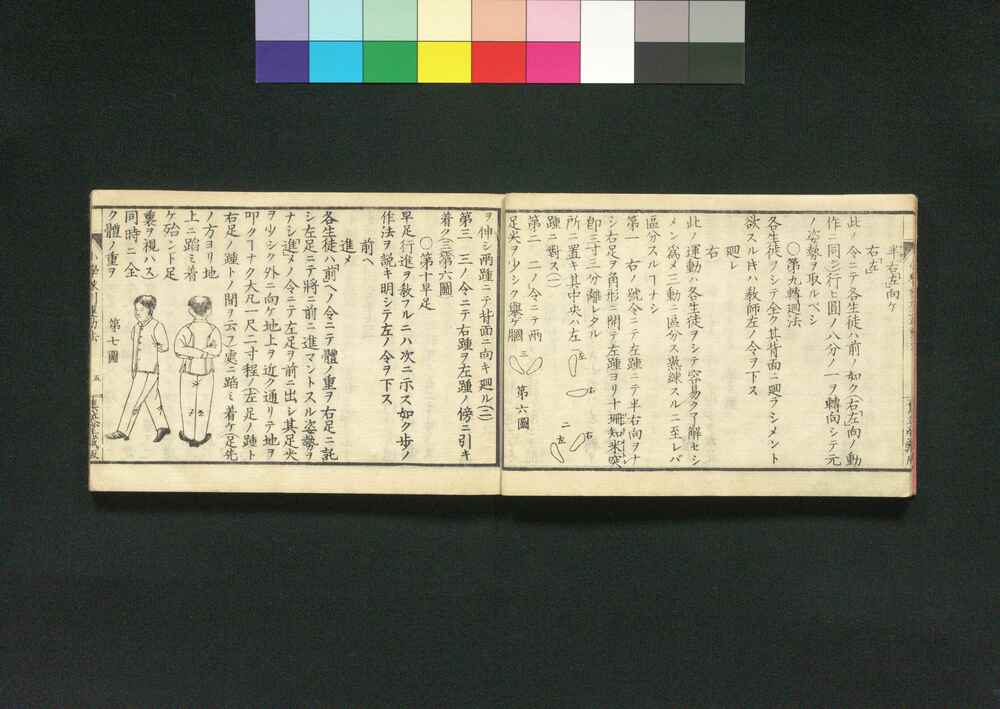 半右左向ケ
右左
此ノ令ニテ各生徒ハ前ノ如ク(右左向ノ動
作ニ同シ)行ヒ圓ノ八分ノ一ヲ轉向シテ元
ノ姿勢ヲ取ルベシ
〇第九轉廻法
各生徒ヲシテ全ク其背面ニ廻ラシメント
欲スル時ハ敎師左ノ令ヲ下ス
廻レ
右
此ノ運動ハ各生徒ヲシテ容易ク了解セシ
メン爲メ三動ニ區分ス熟練スルニ至レバ
區分スルヿナシ
第一 右ノ號令ニテ左踵ニテ半右向ヲナ
シ右足ヲ角形ニ開テ左踵ヨリ十珊知米突
即三寸三分離レタル
所ニ置キ其中央ハ左
踵ニ對ス(一)
第二 二ノ令ニテ兩
足尖ヲ少シク擧ゲ膕
第六圖
一
左
右
二
左
右
三
ヲ伸シ兩踵ニテ背面ニ向キ廻ル(二)
第三 三ノ令ニテ右踵ヲ左踵ノ傍ニ引キ
着ク(三)第六圖
〇第十早足
早足行進ヲ敎フルニハ次ニ示ス如ク歩ノ
作法ヲ説キ明シテ左ノ令ヲ下ス
前ヘ
進メ
各生徒ハ「前ヘ」ノ令ニテ體ノ重ヲ右足ニ託
シ左足ニテ將ニ前ニ進マントスル姿勢ヲ
ナシ「進メ」ノ令ニテ左足ヲ前ニ出シ其足尖
ヲ少シク外ニ向ケ地上ヲ近ク通リテ地ヲ
叩クヿナク大凡一尺二寸程ノ(左足ノ踵ト
右足ノ踵トノ間ヲ云フ)處ニ蹈ミ着ケ(足先
ノ方ヨリ地
上ニ蹈ミ着
ケ殆ンド足
裏ヲ視ハス)
同時ニ全
ク體ノ重ヲ
第七圖
五